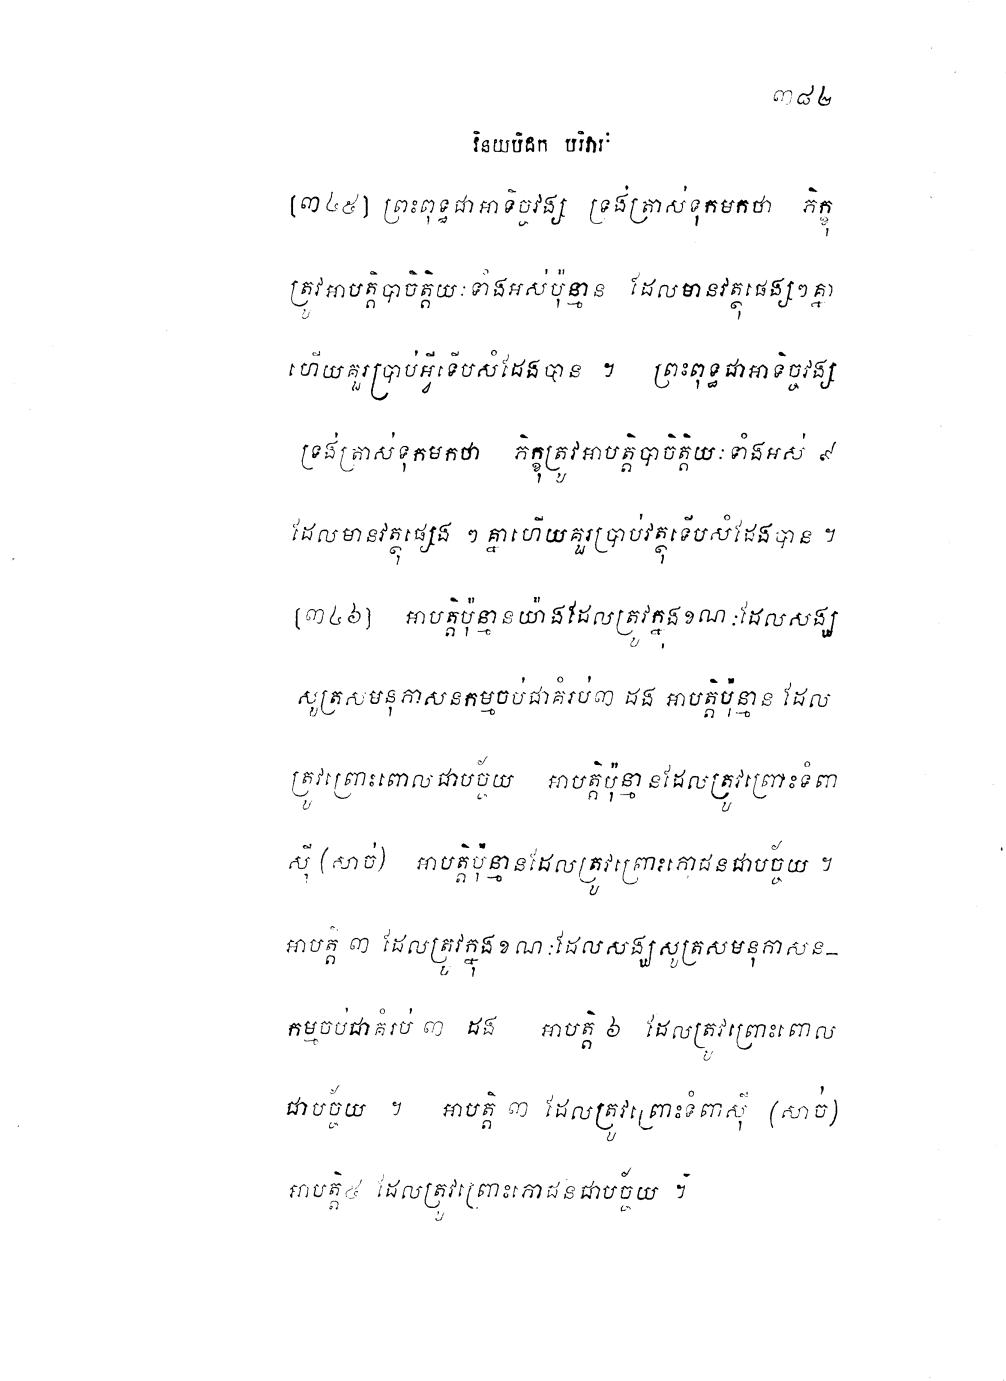 ៣៨២
វិនយបិដក បរិវារៈ
[៣៤៥] ព្រះពុទ្ធជាអាទិច្ចវង្ស ទ្រង់ត្រាស់ទុកមកថា ភិក្ខុ
ត្រូវអាបត្តិបាចិត្តិយៈទាំងអស់ប៉ុន្មាន ដែលមានវត្ថុផេង្ស ៗ គ្នា
ហើយគួរប្រាប់អ្វីទើបសំដែងបាន ។ ព្រះពុទ្ធជាអាទិច្ចវង្ស
ទ្រង់ត្រាស់ទុកមកថា ភិក្ខុត្រូវអាបត្តិបាចិត្តិយៈទាំងអស់ ៩
ដែលមានវត្ថុផ្សេង ៗ គ្នាហើយគួរប្រាប់វត្ថុទើបសំដែងបាន ។
[៣៤៦] អាបត្តិប៉ុន្មានយ៉ាងដែលត្រូវក្នុងខណៈដែលសង្ឃ
សូត្រសមនុភាសនកម្មចប់ជាគំរប់៣ ដង អាបត្តិប៉ុន្មាន ដែល
ត្រូវព្រោះពោលជាបច្ច័យ អាបត្តិប៉ុន្មានដែលត្រូវព្រោះទំពា
ស៊ី (សាច់) អាបត្តិប៉ុន្មានដែលត្រូវព្រោះភោជនជាបច្ច័យ ។
អាបត្តិ ៣ ដែលត្រូវក្នុងខណៈដែលសង្ឃសូត្រសមនុភាសន_
កម្មចប់ជាគំរប់ ៣ ដង អាបត្តិ ៦ ដែលត្រូវព្រោះពោល
ជាបច្ច័យ ។ អាបត្តិ ៣ ដែលត្រូវព្រោះទំពាស៊ី (សាច់)
អាបត្តិ៥ ដែលត្រូវព្រោះភោជនជាបច្ច័យ ។